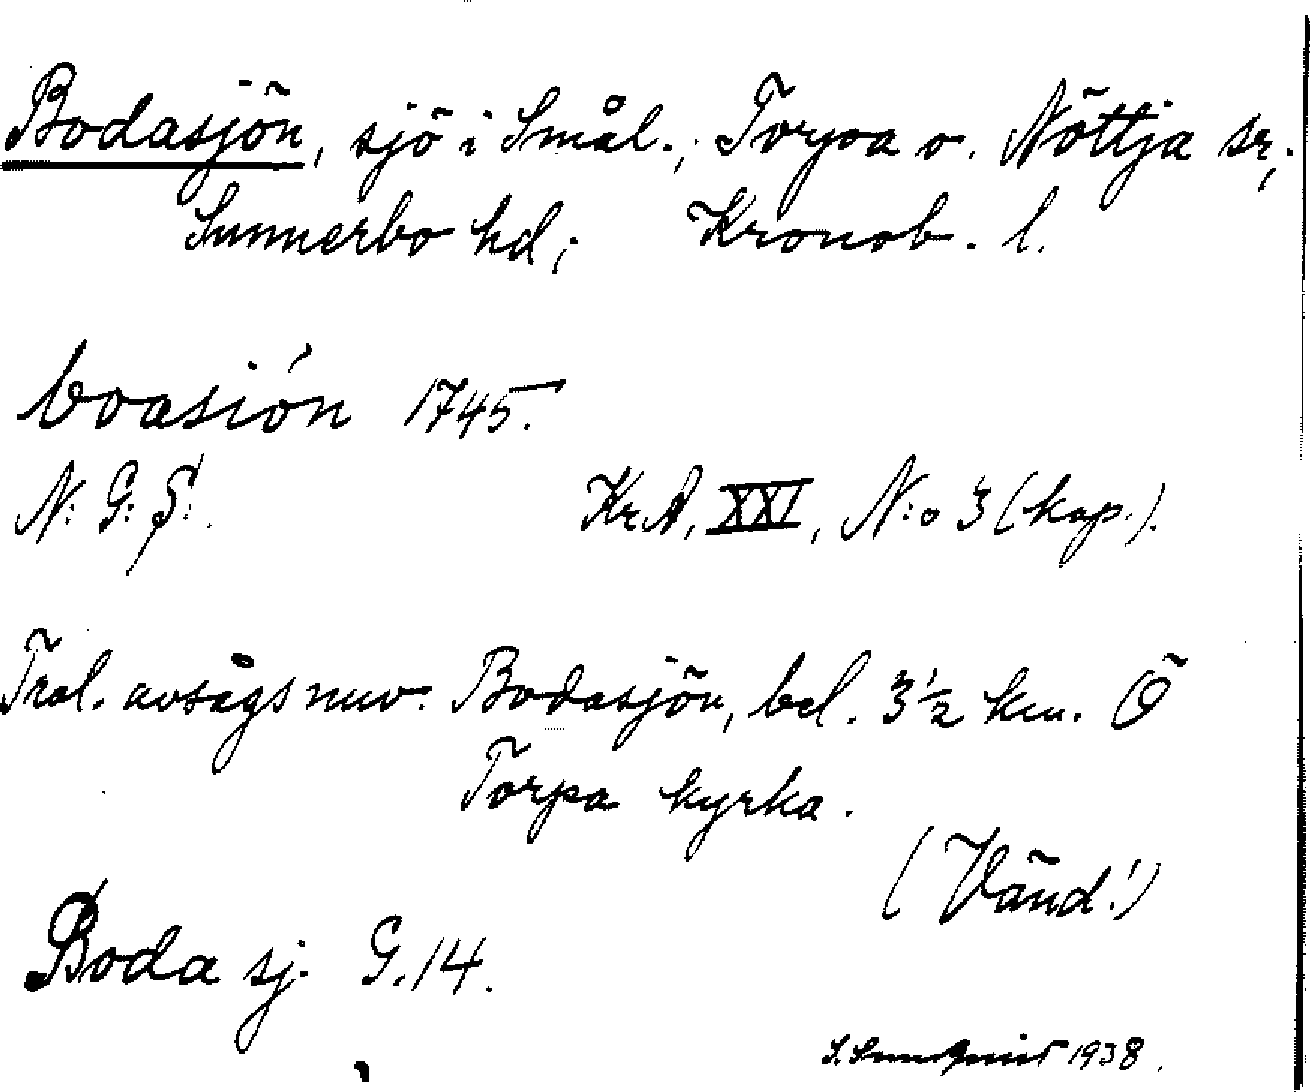 Bodasjön, sjö i Smål., Torpa o. Nöttja sr,
Sunnerbo hd, Kronob. l.
boasión 1745.
N: G: S:.
Kr.A, XXI, N:o 3 (kop.).
Trol. avsågs nuv. Bodasjön, bel. 3½ km. Ö
Torpa kyrka.
(Vänd!)
Boda sj. G.14.
1938.